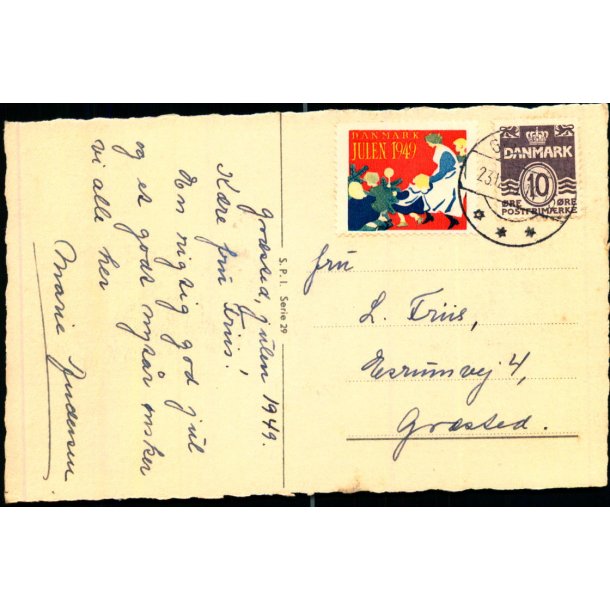 Græsted, julen 1949.
Kære fru Friis!
En rigtig god jul
og et godt nytår ønsker
vi alle her
Marie Andersen
S.P.I. Serie 29
DANMARK
JULEN 1949
DANMARK
10
ØRE ØRE
POSTFRIMÆRKE
G
23.12
fru
L. Friis,
Esrumvej 4,
Græsted.